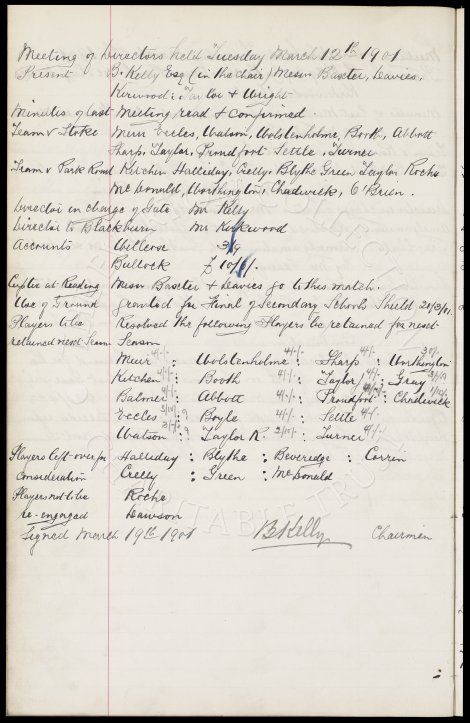 Meeting of Directors held Tuesday March 12th 1901
Present B. Kelly Esq (in the chair) Messrs Baxter, Davies,
Kirwood: Taylor & Wright
Minutes of last Meeting read & confirmed
Team v Stoke Muir Eccles, Watson, Wolstenholme, Booth, Abbott
Sharp, Taylor, Proudfoot Settle, Turner
Team v Park Road Kitchen Halliday, Crelly, Blythe Green Taylor Roche
McDonald, Worthington, Chadwick, O'Brien.
Director in charge of Gate Mr Kelly
Director to Blackburn Mr Kirkwood
Accounts 3/9
Bullock £10/6/.
Cuptie at Reading Messrs Baxter & Davies go to this match.
Use of Ground granted for Final of Secondary Schools Shield 20/3/01.
Players to be Resolved the following Players be retained for next
retained next Season Season
Muir 4/-/- : Wolstenholme 4/-/- : Sharp 4/-/- : Worthington
Kitchen 4/-/- : Booth 4/-/- : Taylor 4/-/- : Gray
Balmer 4/-/- Abbott 4/-/- : Proudfoot : Chadwick
Eccles : Boyle 4/-/- : Settle 4/-/-
Watson : Taylor R. : Turner 4/-/-
Players left over for Halliday : Blythe : Beveredge : Corrin
Consideration Crelly : Green : McDonald
Players not to be Roche
re-engaged Dawson
Signed March 19th 1901 B Kelly Chairman